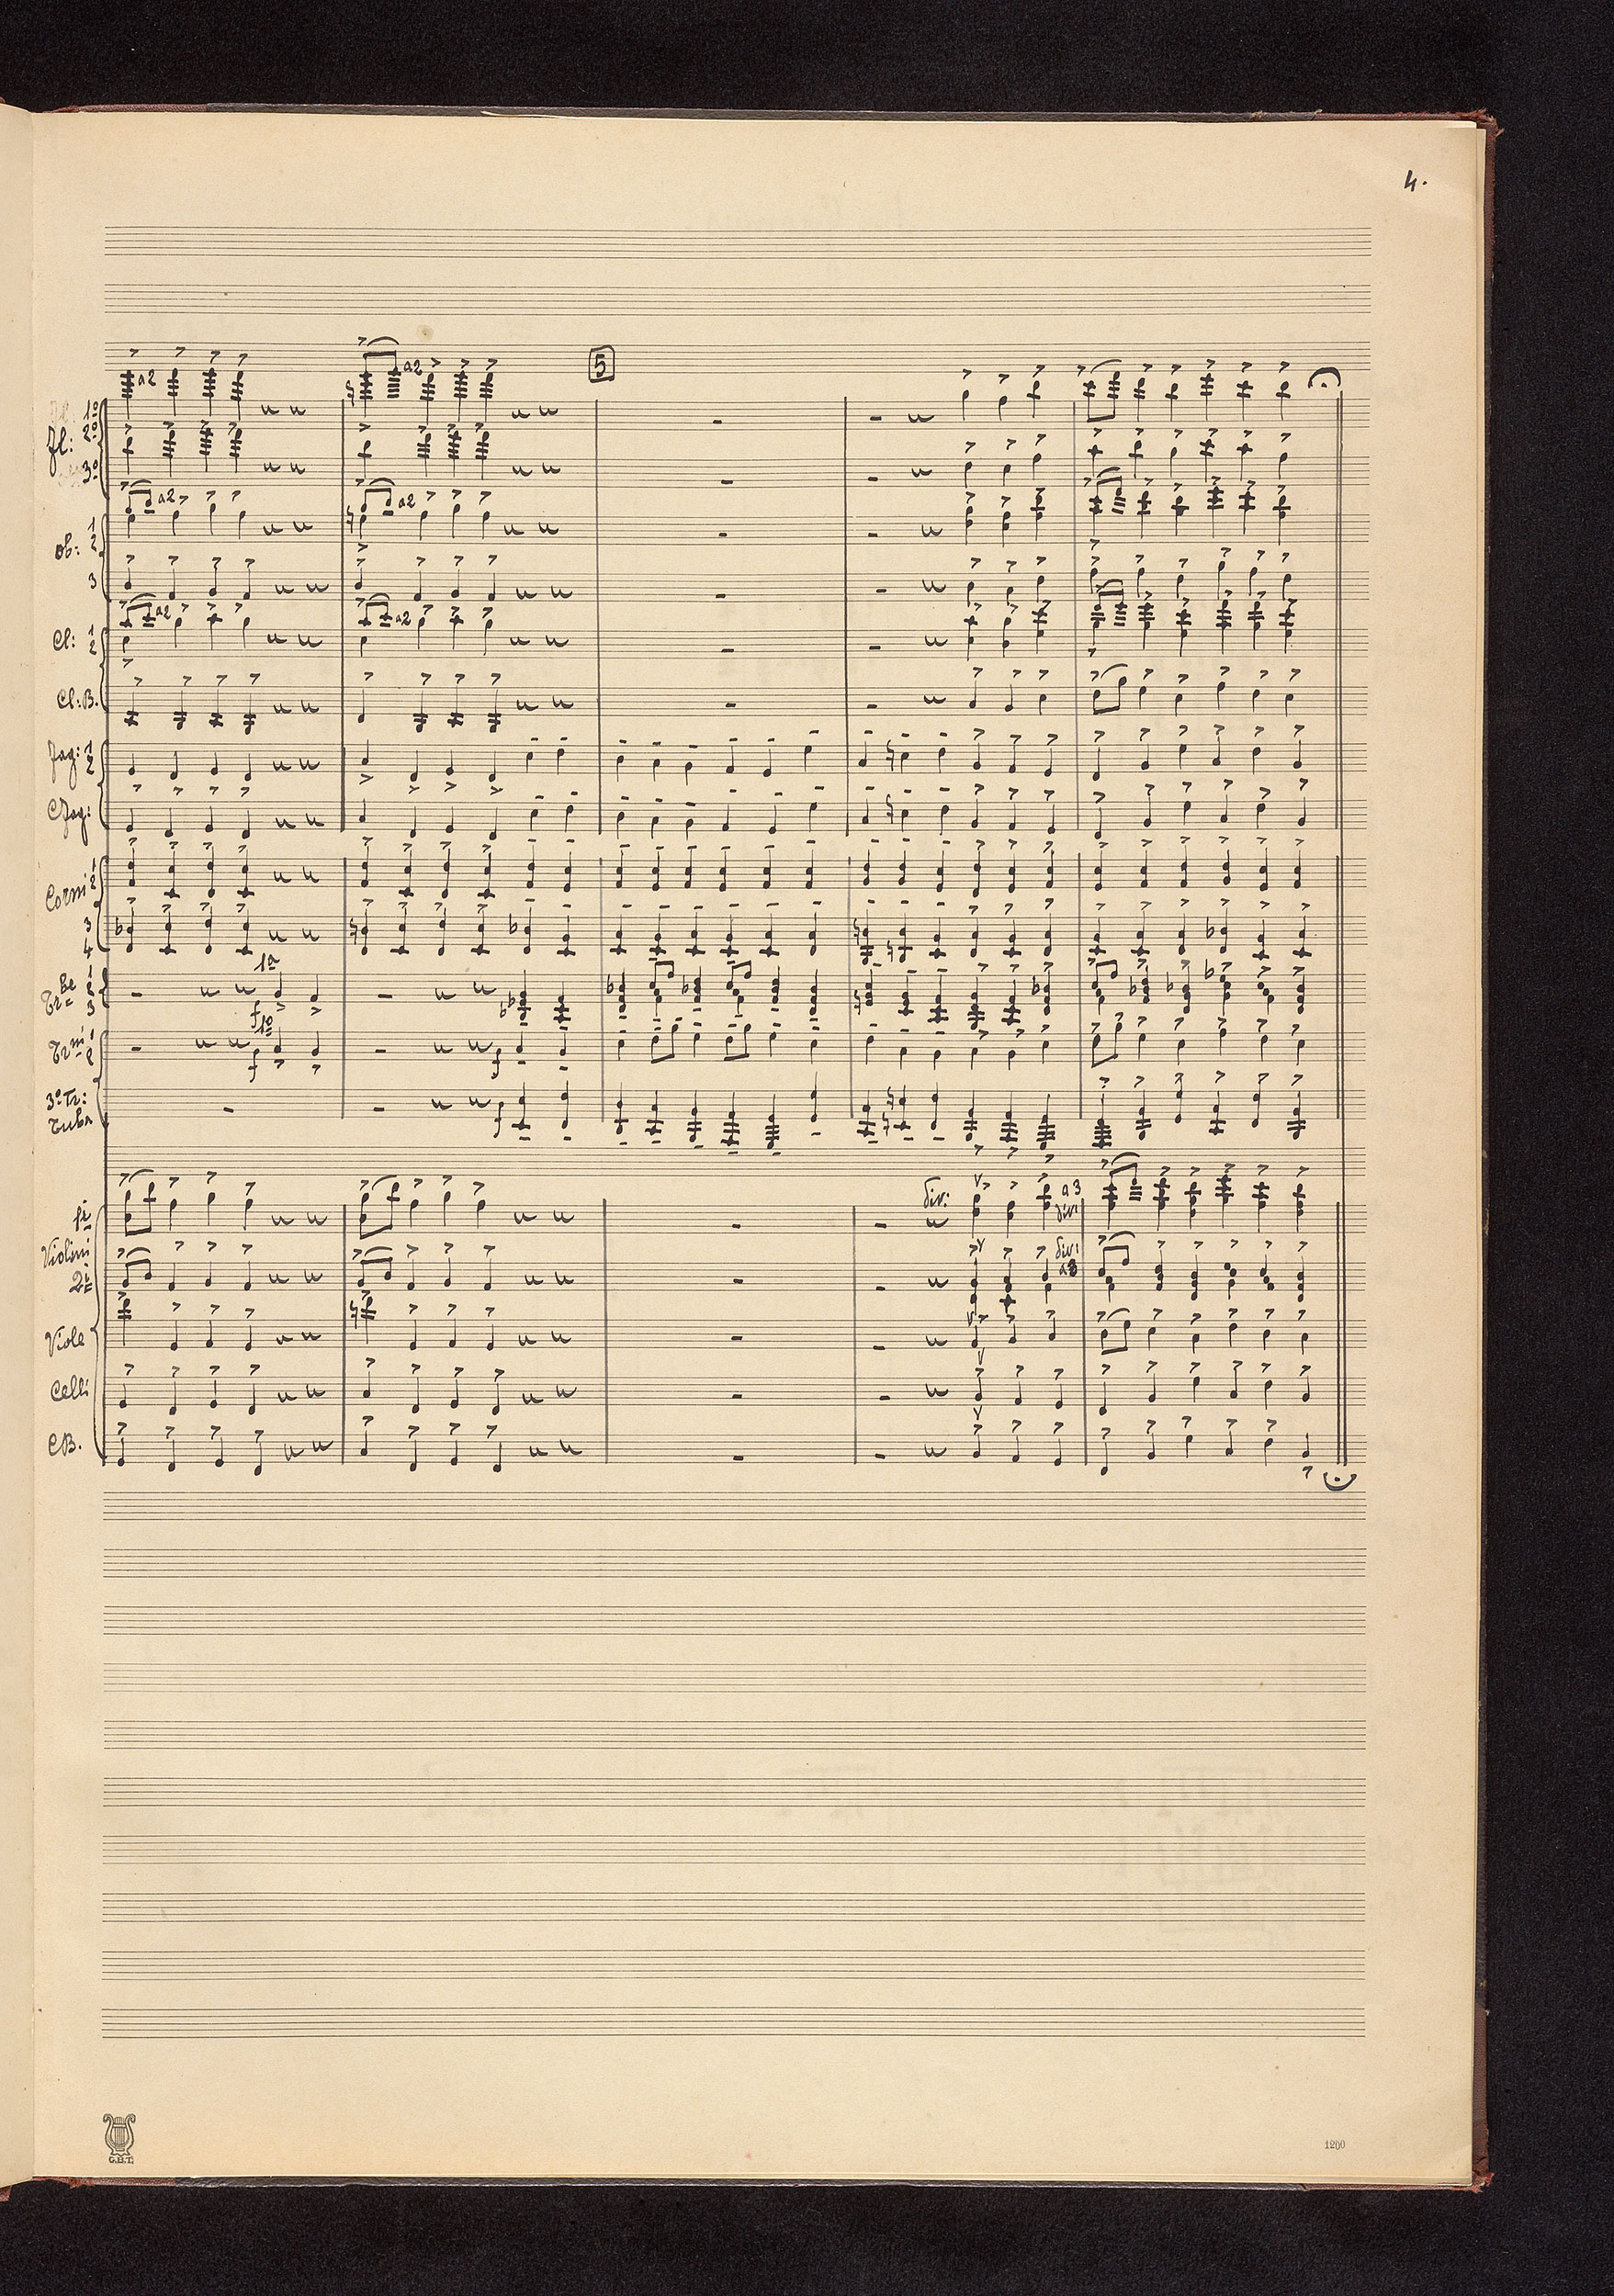 4.
a2 a2 5
1º
2º
Fl:
3º
a2 a2
Ob: 1
2
3
a2 a2
Cl: 1
2
Cl:B.
Fag: 1
2
CFag:
Corni 1
2
3
4
1a
Trbe 1
2
3
f
1º
Trni 1
2
f f
3º Tr:
Tuba f
div: a3
div:
1i
Violini
2i
div:
a3
Viole
Celli
CB.
G.H.T.
1200